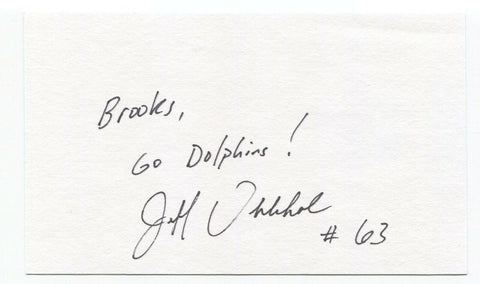 Brooks,
Go Dolphins!
Jeff Uhlenhake
# 63